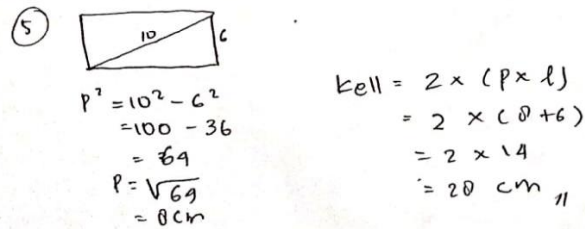 5
10
6
p² = 10² - 6²
= 100 - 36
= 64
P = √64
= 8cm
kell = 2 x (p x l)
= 2 x (8 + 6)
= 2 x 14
= 28 cm //